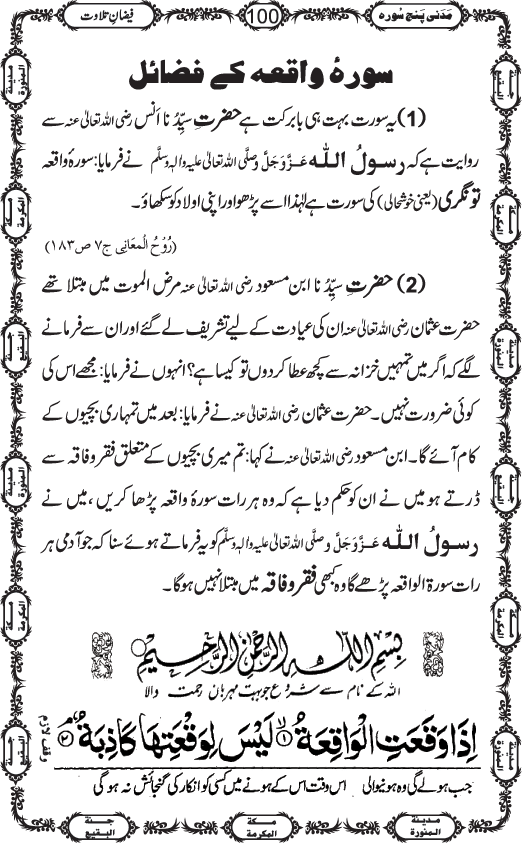 مَدَنی پَنج سُورہ
100
فیضانِ تلاوت
سورۂ واقعہ کے فضائل
(1) یہ سورت بہت ہی بابرکت ہے حضرتِ سیِّدُ نا اَنَس رضی اللہ تعالیٰ عنہ سے
روایت ہے کہ رسولُ اللہ عَزَّوَجَلَّ وصلَّی اللہ تعالیٰ علیہ واٰلہٖ وسلَّم نے فرمایا: سورۂ واقعہ
تونگری (یعنی خوشحالی) کی سورت ہے لہٰذا اسے پڑھو اور اپنی اولاد کو سکھاؤ۔
(رُوْحُ الْمعَانِی ج۷ ص۱۸۳)
(2) حضرتِ سیِّدُ نا ابن مسعود رضی اللہ تعالیٰ عنہ مرض الموت میں مبتلا تھے
حضرت عثمان رضی اللہ تعالیٰ عنہ ان کی عیادت کے لیے تشریف لے گئے اور ان سے فرمانے
لگے کہ اگر میں تمہیں خزانہ سے کچھ عطا کردوں تو کیسا ہے؟ انہوں نے فرمایا: مجھے اس کی
کوئی ضرورت نہیں۔ حضرت عثمان رضی اللہ تعالیٰ عنہ نے فرمایا: بعد میں تمہاری بچیوں کے
کام آئے گا۔ ابن مسعود رضی اللہ تعالیٰ عنہ نے کہا: تم میری بچیوں کے متعلق فقر و فاقہ سے
ڈرتے ہو میں نے ان کو حکم دیا ہے کہ وہ ہر رات سورۂ واقعہ پڑھا کریں ، میں نے
رسولُ اللہ عَزَّوَجَلَّ وصلَّی اللہ تعالیٰ علیہ واٰلہٖ وسلَّم کو یہ فرماتے ہوئے سنا کہ جو آدمی ہر
رات سورۃ الواقعہ پڑھے گا وہ کبھی فقر و فاقہ میں مبتلا نہیں ہوگا۔
بِسْمِ اللّٰهِ الرَّحْمٰنِ الرَّحِيْمِ
اللہ کے نام سے شروع جو بہت مہربان رحمت والا
اِذَا وَقَعَتِ الْوَاقِعَةُ ۙ﴿۱﴾ لَیْسَ لِوَقْعَتِهَا كَاذِبَةٌ ۘ﴿۲﴾
وقف لازم
جب ہولے گی وہ ہونیوالی اس وقت اس کے ہونے میں کسی کو انکار کی گنجائش نہ ہو گی
مدينة المنورة
مكة المكرمة
جنة البقيع
مدينة المنورة
جنة البقيع
مكة المكرمة
مدينة المنورة
جنة البقيع
جنة البقيع
مكة المكرمة
مدينة المنورة
جنة البقيع
مكة المكرمة
مدينة المنورة
جنة البقيع
مكة المكرمة
مدينة المنورة